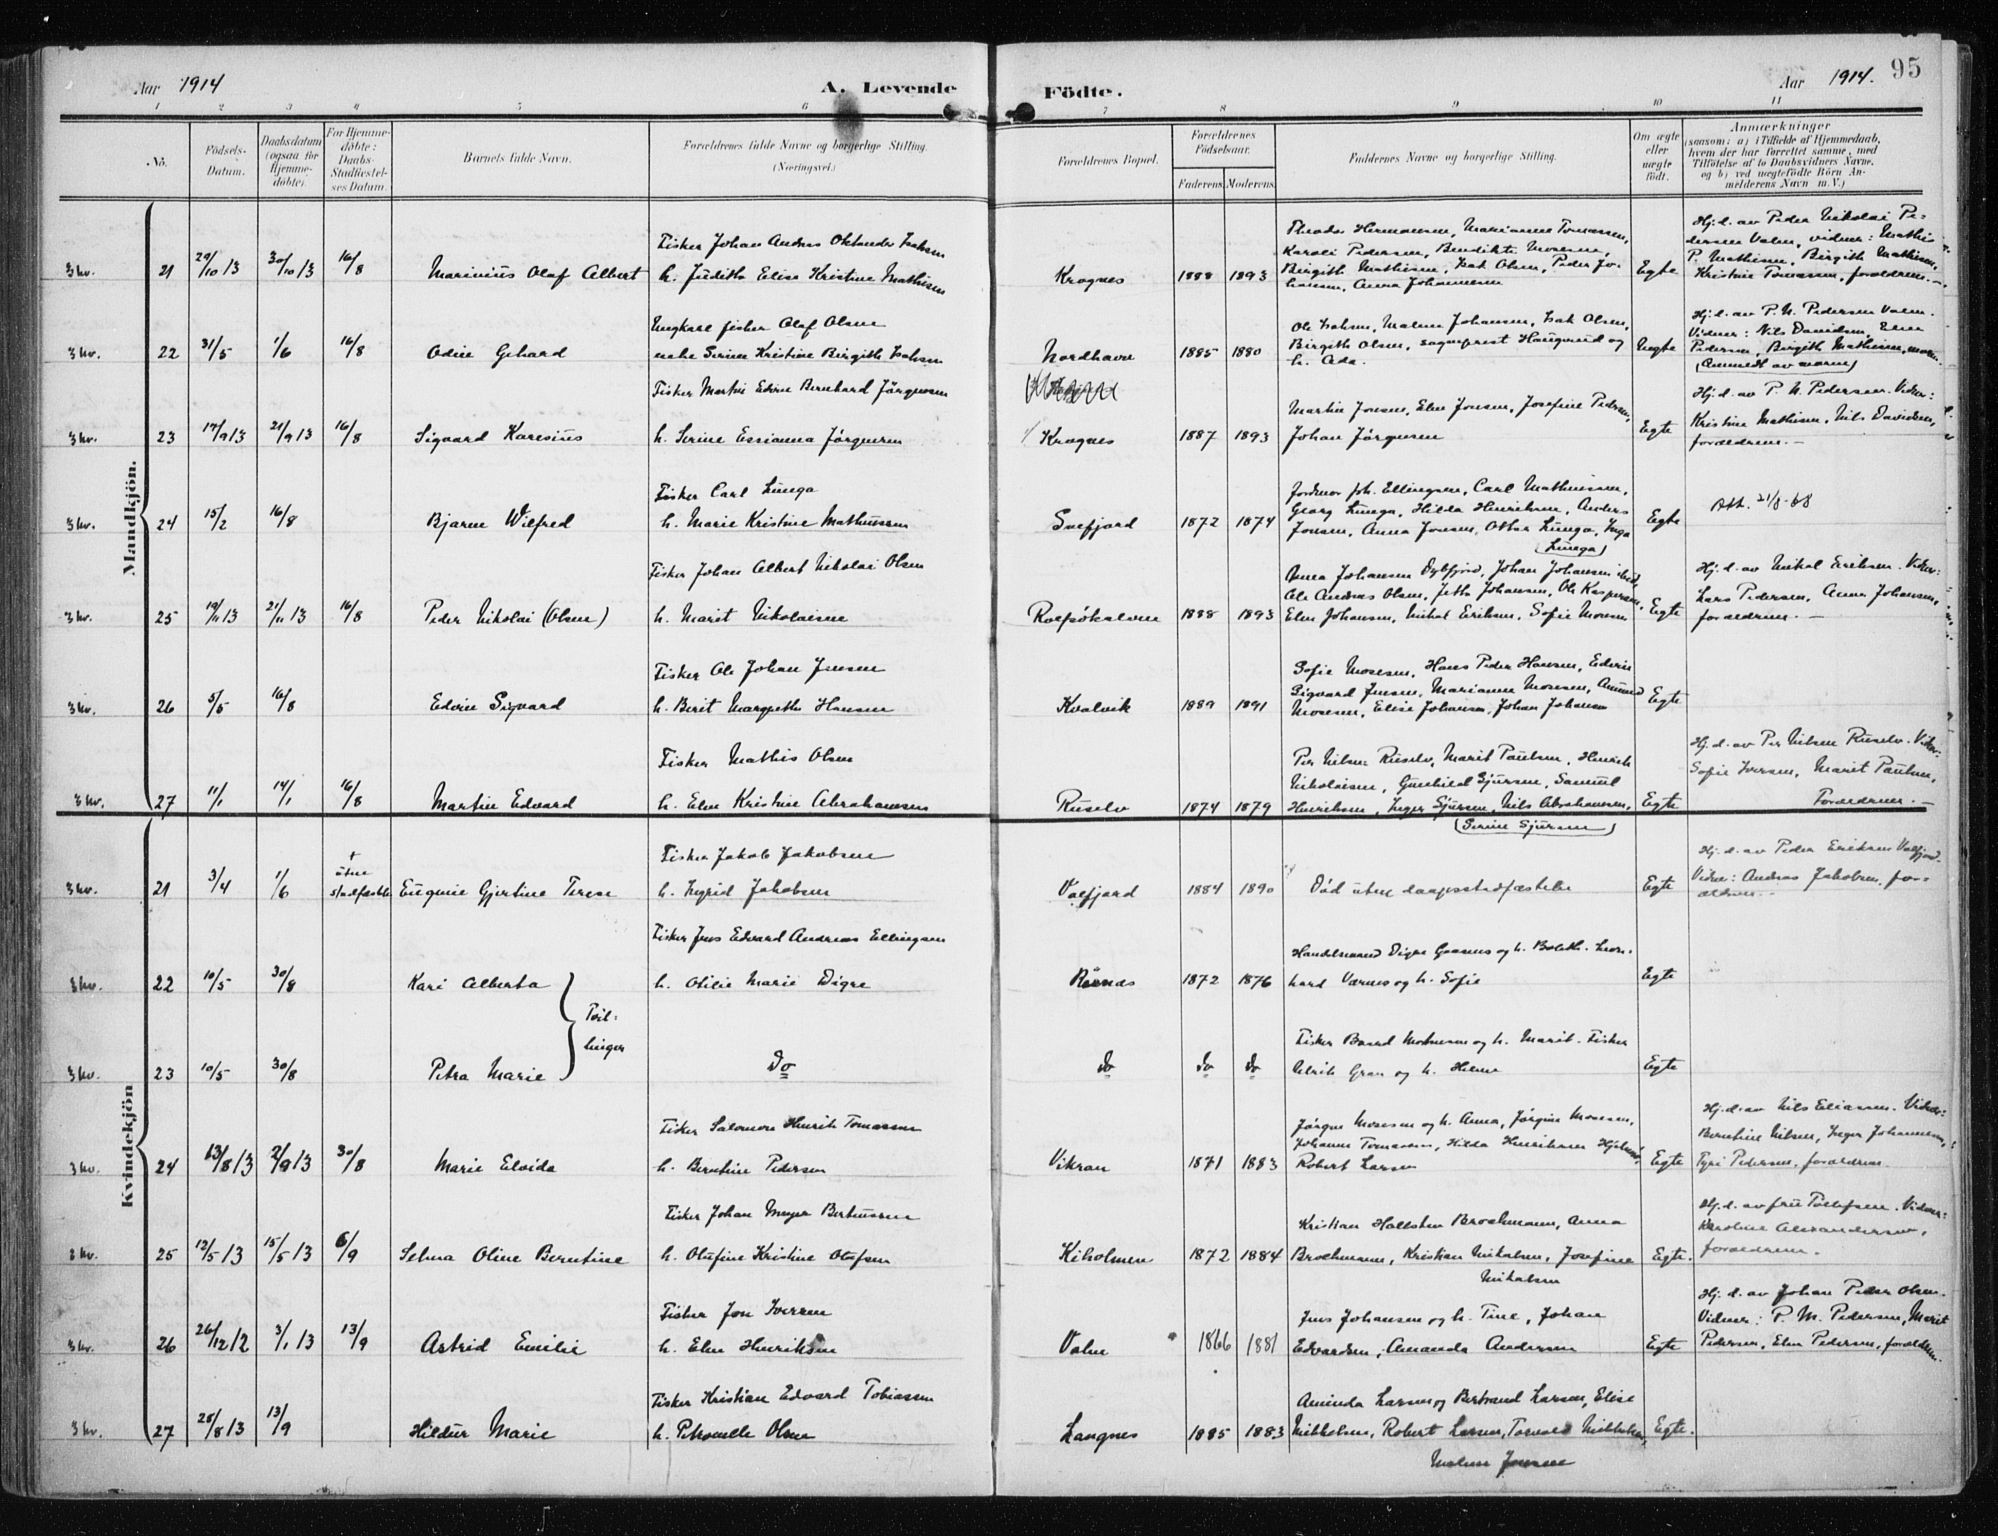 95
Aar 1914
A. Levende
Födte.
Aar 1914.
1 2 3 4 5 6 7 8 9 10 11
No.
Födsels-
Datum.
Daabsdatum
(ogsaa for
Hjemme-
döbte).
For Hjemme-
döbte:
Daabs-
Stadfæstel-
ses Datum.
Barnets fulde Navn.
Forældrenes fulde Navne og borgerlige Stilling.
(Næringsvei.)
Forældrenes Bopæl.
Forældrenes
Födselsaar.
Faderens. Moderens.
Faddernes Navne og borgerlige Stilling.
Om ægte
eller
uægte
födt.
Anmærkninger
(saasom: a) i Tilfælde af Hjemmedaab,
hvem der har forrettet samme, med
Tilföielse af to Daabsvidners Navne,
og b) ved uægtefödte Börn An-
melderens Navn m. V.)
Mandkjön.
3 kv. 21 29/10 13 30/10 13 16/8 Marinius Olaf Albert
Fisker Johan Andreas Oktander Isaksen
h. Judith Elise Kristine Mathisen
Krognes 1888 1893
Theodor Hermansen, Marianne Tomassen,
Karoli Pedersen, Bendikte Mosesen,
Birgith Mathisen, Isak Olsen, Peder Jo-
hansen, Anna Johannesen
Egte
Hj. d. av Peder Nikolai Pe-
dersen Valen, vidner: Mathis
P. Mathisen, Birgith Mathisen,
Kristine Tomassen, forældrene. -
3 kv. 22 31/5 1/6 16/8 Odin Gehard
Ungkarl fisker Olaf Olsen
enke Serine Kristine Birgith Isaksen
Nordhavn 1885 1880
Ole Isaksen, Malene Johansen, Isak Olsen,
Birgith Olsen, sogneprest Haugerud og
h. Ada.
Uegte
Hj. d. av P. N. Pedersen Valen.
Vidner: Nils Davidsen, Elen
Pedersen, Birgith Mathisen, moren.
(Anmeldt av moren)
3 kv. 23 17/9 13 21/9 13 16/8 Sigvard Karesius
Fisker Martin Edvin Bernhard Jörgensen
h. Serine Essianna Jörgensen
Krognes 1887 1893
Martin Jensen, Elen Jensen, Josefine Pedersen,
Johan Jörgensen
Egte
Hj. d. av P. N. Pedersen. Vidner:
Kristine Mathisen, Nils Davidsen,
forældrene. -
3 kv. 24 15/2 16/8 Bjarne Wilfred
Fisker Carl Lunga
h. Marie Kristine Mathisen
Snefjord 1872 1874
Jordmor Joh. Ellingsen, Carl Mathiesen,
Georg Lunga, Hilda Henriksen, Anders
Jensen, Anna Jensen, Ottar Lunga, Inga
(Lunga)
Egte
Att. 21/8-68
3 kv. 25 19/11 13 21/11 13 16/8 Peder Nikolai (Olsen)
Fisker Johan Albert Nikolai Olsen
h. Marit Nikolaisen
Rolfsökalven 1888 1893
Anna Johansen Dybfjord, Johan Johansen ibid,
Ole Andreas Olsen, Jetta Johansen, Ole Kaspersen,
Elen Johansen, Mikal Eriksen, Sofie Mosesen
Egte
Hj. d. av Mikal Eriksen. Vidner:
Lars Pedersen, Anna Johansen,
forældrene. -
3 kv. 26 5/5 16/8 Edvin Sigvard
Fisker Ole Johan Jensen
h. Berit Margrethe Hansen
Kvalvik 1889 1891
Sofie Mosesen, Hans Peder Hansen, Edvin
Sigvard Jensen, Marianne Mosesen, Amund
Mosesen, Elise Johansen, Johan Johansen
Egte
3 kv. 27 11/1 14/1 16/8 Martin Edvard
Fisker Mathis Olsen
h. Elen Kristine Abrahamsen
Ruselv 1874 1879
Per Nilsen Ruselv, Marit Paulsen, Henrik
Nikolaisen, Gunhild Sjursen, Samuel
Henriksen, Inger Sjursen, Nils Abrahamsen,
(Serine Sjursen)
Egte
Hj. d. av Per Nilsen Ruselv. Vidner:
Sofie Iversen, Marit Paulsen,
Forældrene. -
Kvindekjön
3 kv. 21 3/4 1/6 † uten stadfæstelse Eugenie Gjertine Terese
Fisker Jakob Jakobsen
h. Ingrid Jakobsen
Valfjord 1884 1890
Död uten daapsstadfæstelse
Egte
Hj. d. av Peder Eriksen Valfjord.
Vidner: Andreas Jakobsen, for-
ældrene. -
3 kv. 22 10/5 30/8 Kari Alberta
Tvil-
linger
Fisker Jens Edvard Andreas Ellingsen
h. Otilie Marie Digre
Rörnæs 1872 1876
Handelsmand Digre Gaasnes og h. Boleth. Leon-
hard Værnes og h. Sofie
Egte
3 kv. 23 10/5 30/8 Petra Marie
Do
do do do
Fisker Baard Mortensen og h. Marit. Fisker
Ulrik Gran og h. Helene
Egte
3 kv. 24 13/8 13 2/9 13 30/8 Marie Elvida
Fisker Salomon Henrik Tomassen
h. Berntine Pedersen
Vikran 1871 1883
Jörgen Mosesen og h. Anna, Jörgine Mosesen,
Johanne Tomassen, Hilda Henriksen Hjelmsö,
Robert Larsen
Egte
Hj. d. av Nils Eliassen. Vidner:
Berntine Nilsen, Inger Johannesen,
Pyri Pedersen, forældrene.
3 kv. 25 12/5 13 15/5 13 6/9 Selma Oline Berntine
Fisker Johan Meyer Berteussen
h. Olufine Kristine Olufsen
Kiholmen 1872 1884
Kristian Hallsten Brochmann, Anna
Brochmann, Kristian Mikalsen, Josefine
Mikalsen
Egte.
Hj. d. av fru Tollefsen. Vidner:
Karoline Alexandersen,
forældrene.
3 kv. 26 26/12 12 3/1 13 13/9 Astrid Emilie
Fisker Jon Iversen
h. Elen Henriksen
Valen 1866 1881
Jens Johansen og h. Tine, Johan
Edvardsen, Amanda Andersen
Egte
Hj. d. av Johan Peder Olsen.
Vidner: P. M. Pedersen, Marit
Pedersen, Elen Pedersen, forældrene.
3 kv. 27 25/8 13 13/9 Hildur Marie
Fisker Kristian Edvard Tobiassen
h. Petronelle Olsen
Langnes 1885 1883
Aminda Larsen og Bertrand Larsen, Elise
Mikkelsen, Robert Larsen, Torvald Mikkelsen,
Malene Jensen
Egte.